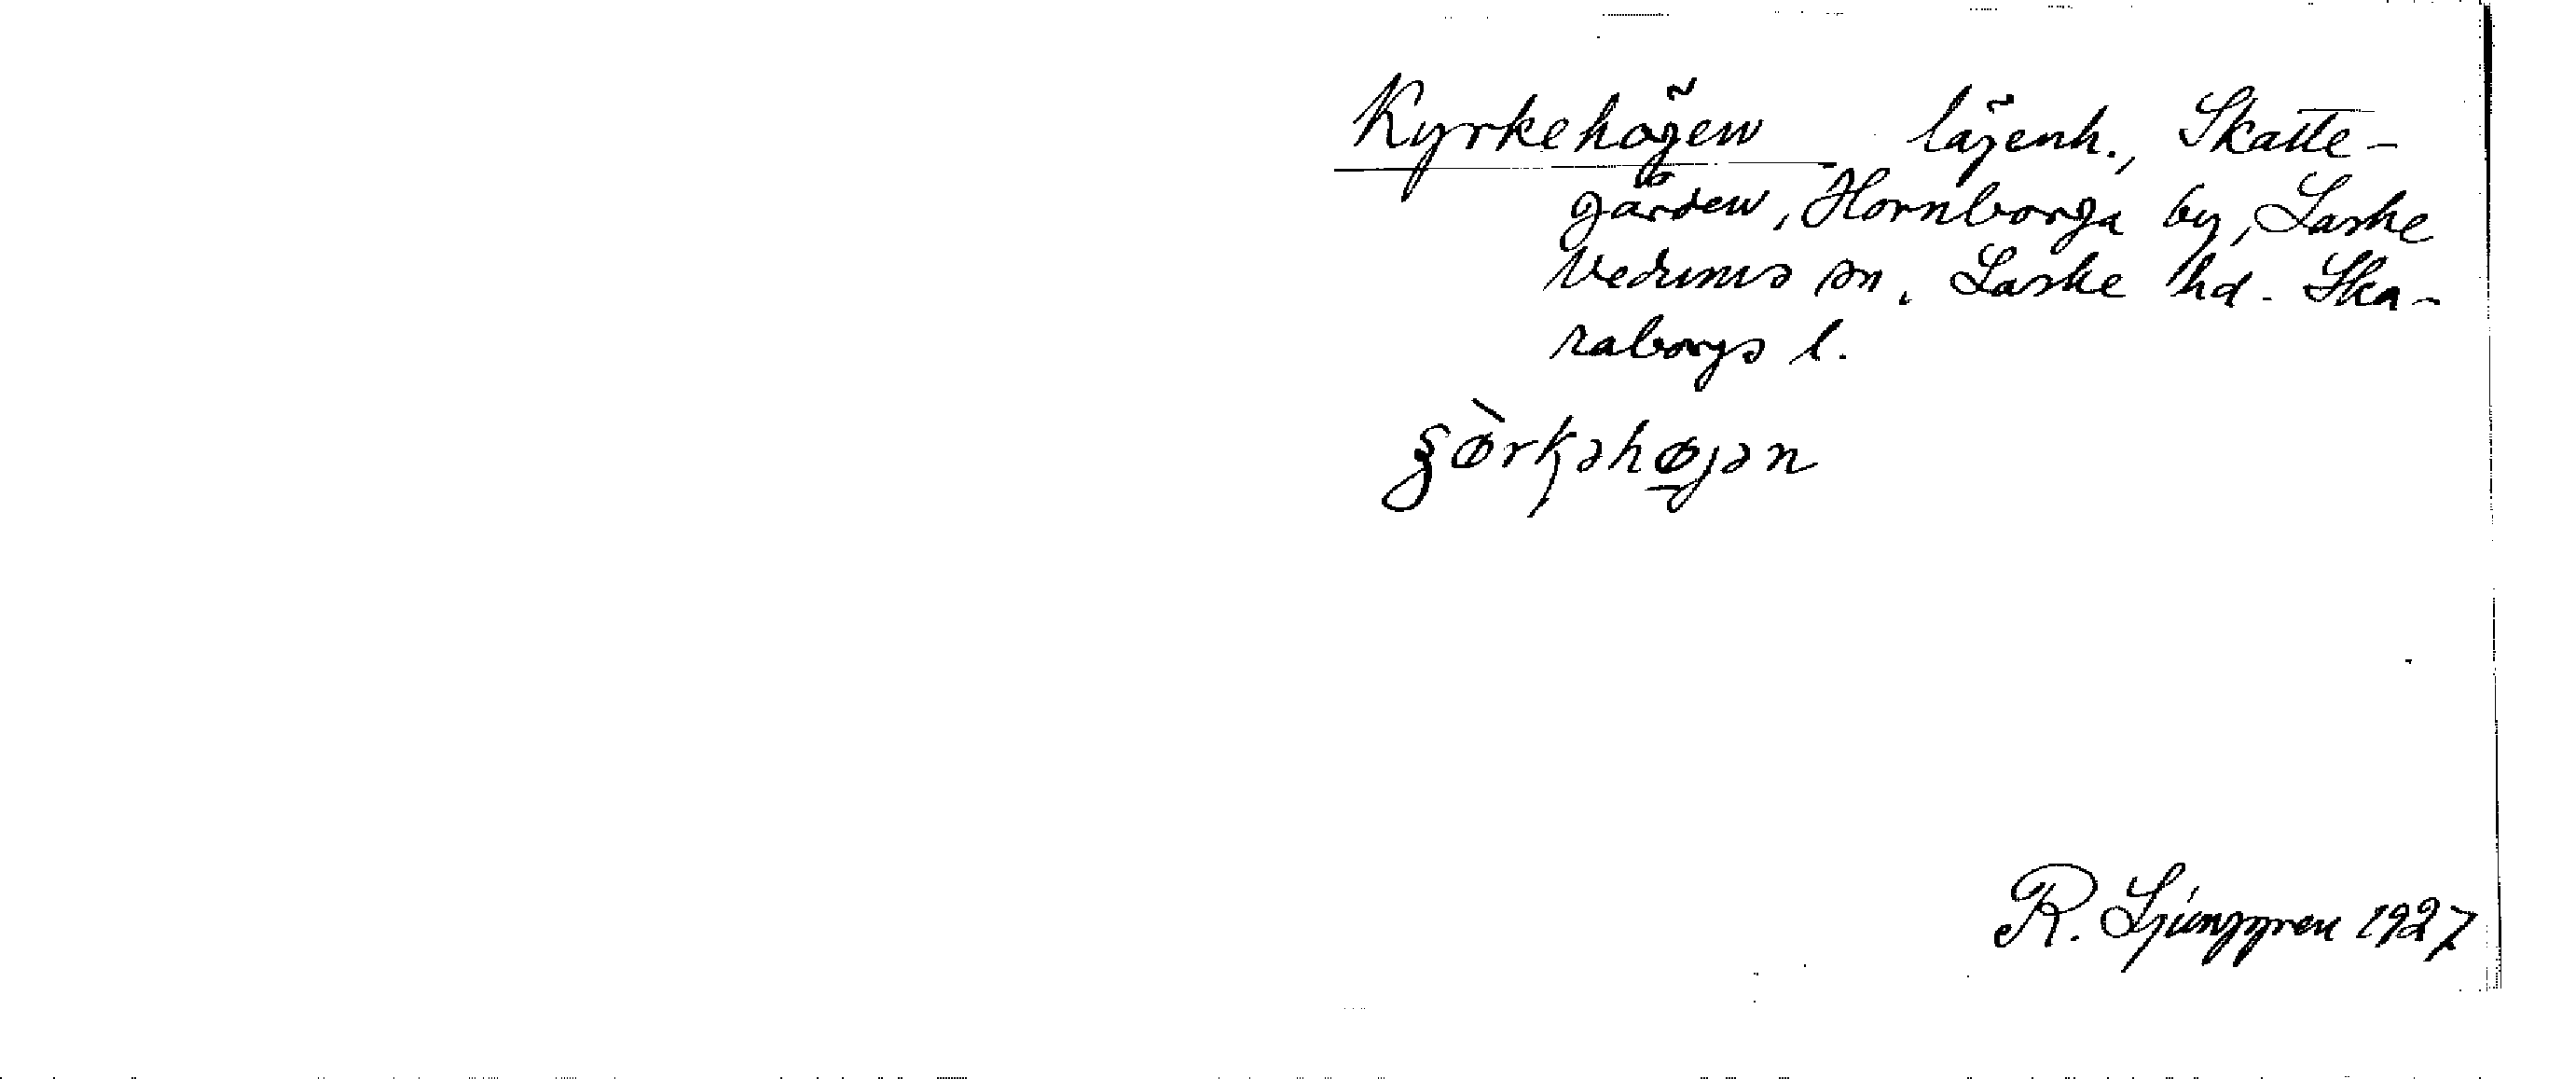 Kyrkehögen lägenh., Skatte-
gården, Hornborga by, Laske
Vedums sn, Laske hd. Ska-
raborgs l.
R. Ljunggren 1927